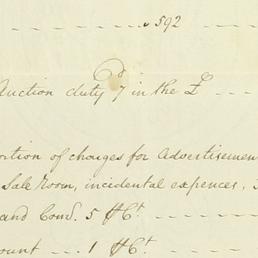 592
Auction duty 7d in the £
ortion of charges for Advertisemen
Sale Room, incidental expences,
and Comn. 5 ₱Ct.
ount 1 ₱Ct.